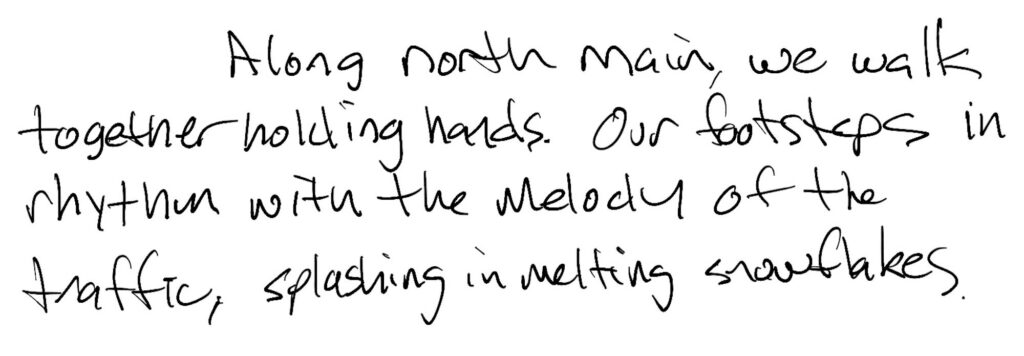 Along north main, we walk
together holding hands. Our footsteps in
rhythm with the melody of the
traffic, splashing in melting snowflakes.